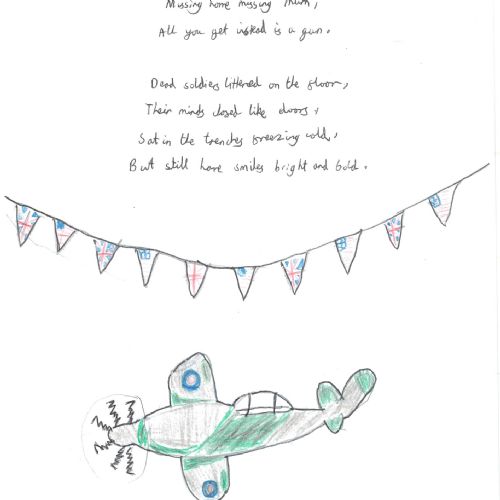 Missing home missing mum,
All you get instead is a gun.
Dead soldiers littered on the floor,
Their minds closed like doors,
Sat in the trenches freezing cold,
But still have smiles bright and bold.